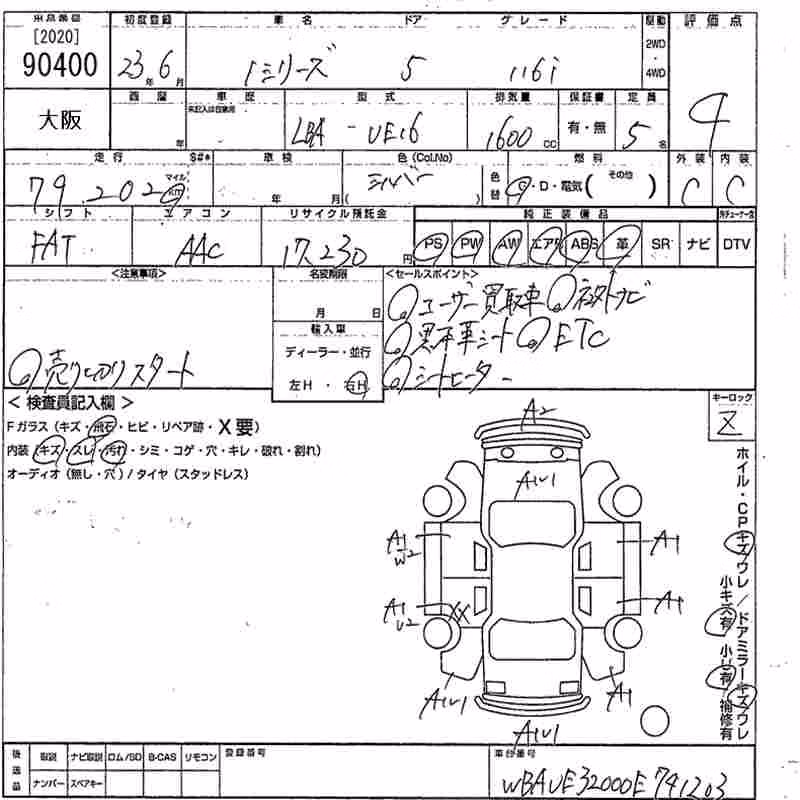 出品番号 初度登録 車名 ドア グレード 駆動 評価点
[2020]
90400 23年6月 1シリーズ 5 116i 2WD・4WD 4
大阪 西暦 年 車歴 未記入は自家用 型式 LBA-UE16 排気量 1600cc 保証書 有・無 定員 5名
走行 S#* 79,202 マイル km 車検 年 月 色(Col.No) シルバー ( ) 色替 燃料 G・D・電気 ( その他 ) 外装 C 内装 C
シフト FAT エアコン AAC リサイクル預託金 17,230円 純正装備品
PS PW AW エアB ABS 革 SR ナビ DTV
<注意事項> 名変期限 <セールスポイント>
月 日
①ユーザー買取車
輸入車
ディーラー・並行 黒本革シート ETC
売りきりスタート 左H・右H シートヒーター
<検査員記入欄> キーロック
Fガラス (キズ・飛石・ヒビ・リペア跡・X要) Z
内装 (キズ・スレ・汚れ・シミ・コゲ・穴・キレ・破れ・割れ)
オーディオ (無し・穴) / タイヤ (スタッドレス)
A2
A1U1
A1
W2
A1
A1
U2
XX
A1
A1U1
A1
A1U1
ホイル・CPキズワレ/ドアミラーキズワレ
小キズ有 小凹有 補修有
後送品 取説 ナビ取説 ロム/SD B-CAS リモコン 登録番号 車台番号
ナンバー スペアキー WBAUE32000E741203